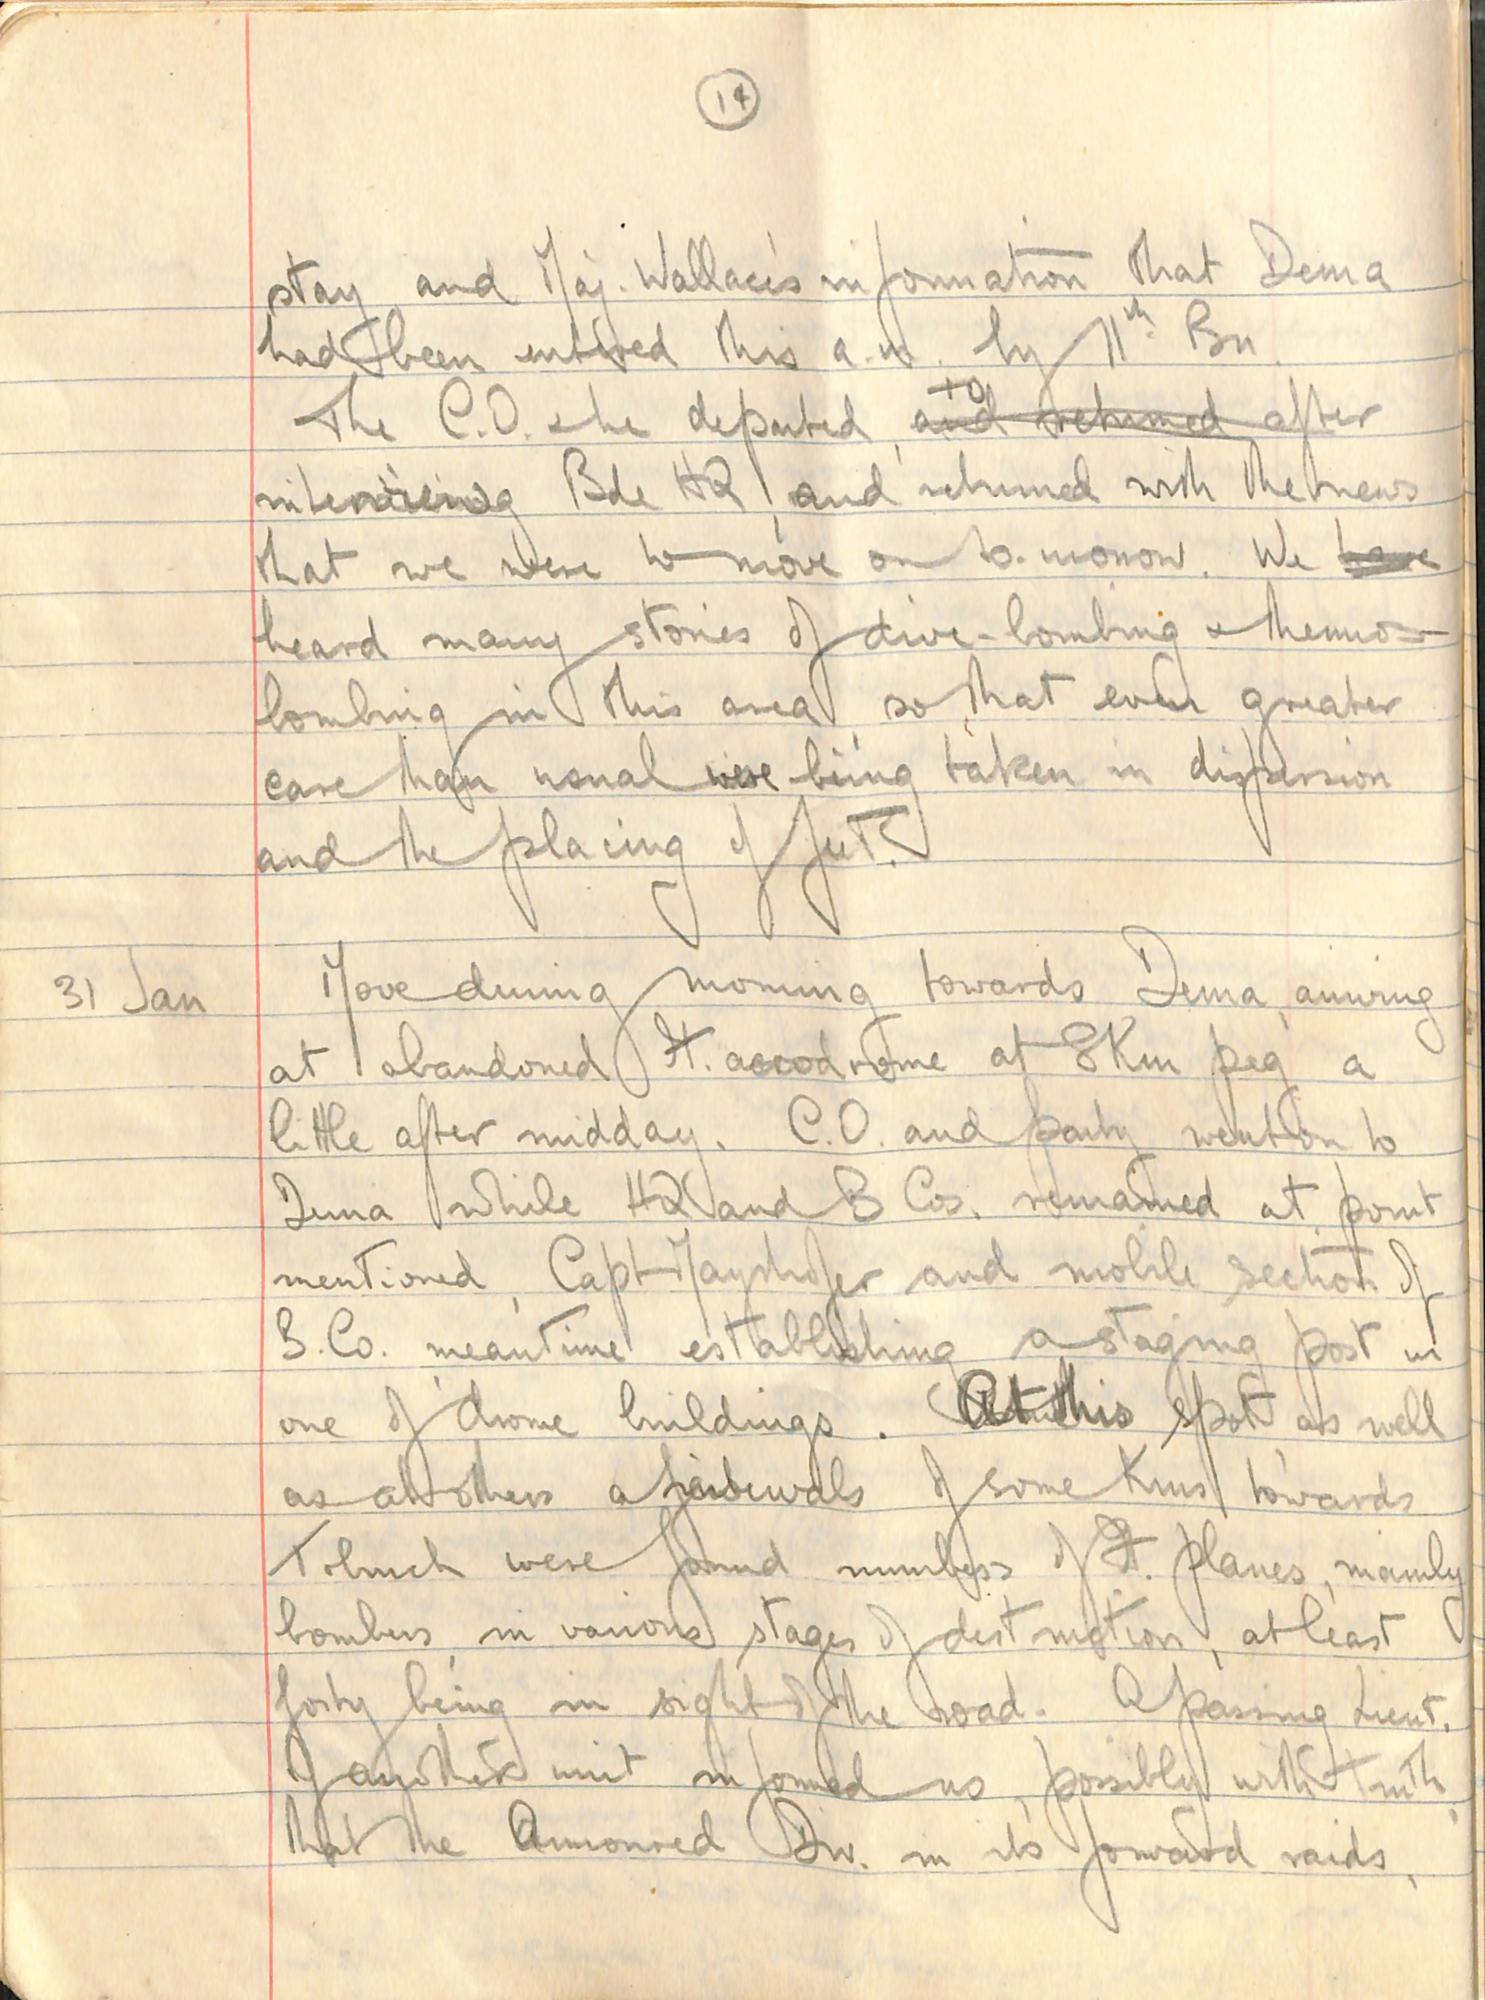 14
stay and Maj. Wallace's information that Derna
had been entered this a.m. by 11th Bn.
The C.O. & he departed, to and returned after
interviewing Bde HQ, and returned with the news
that we were to move on to-morrow. We have
heard many stories of dive-bombing & thermos-
bombing in this area, so that even greater
care than usual were being taken in dispersion
and the placing of
31 Jan Move during morning towards Derna, arriving
at abandoned It. aerodrome at 8 Km peg a
little after midday. C.O. and party went on to
Derna while HQ and B Cos. remained at point
mentioned, Capt Mayrhofer and mobile section of
B. Co. meantime establishing a staging post in
one of 'drome buildings. At this spot, as well
as at others at intervals of some Kms towards
Tobruch were found numbers of It. planes, mainly
bombers, in various stages of destruction, at least
forty being in sight of the road. A passing Lieut.
of another unit informed us, possibly with truth,
that the Armoured Div. in its forward raids,